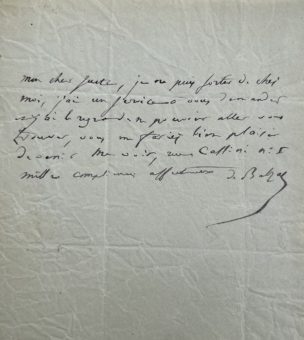 mon cher Juste, je ne puis sortir de chez
moi, j'ai un service a vous demander
et j'ai le regret de ne pouvoir aller vous
trouver, vous me feriez bien plaisir
de venir me voir, rue Cassini n° 1
mille complimens affectueux de Balzac